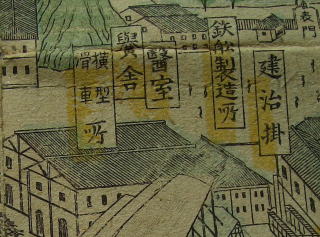 表門
建治掛
鉄舩製造所
醫室
黌舍
横型
滑車
所